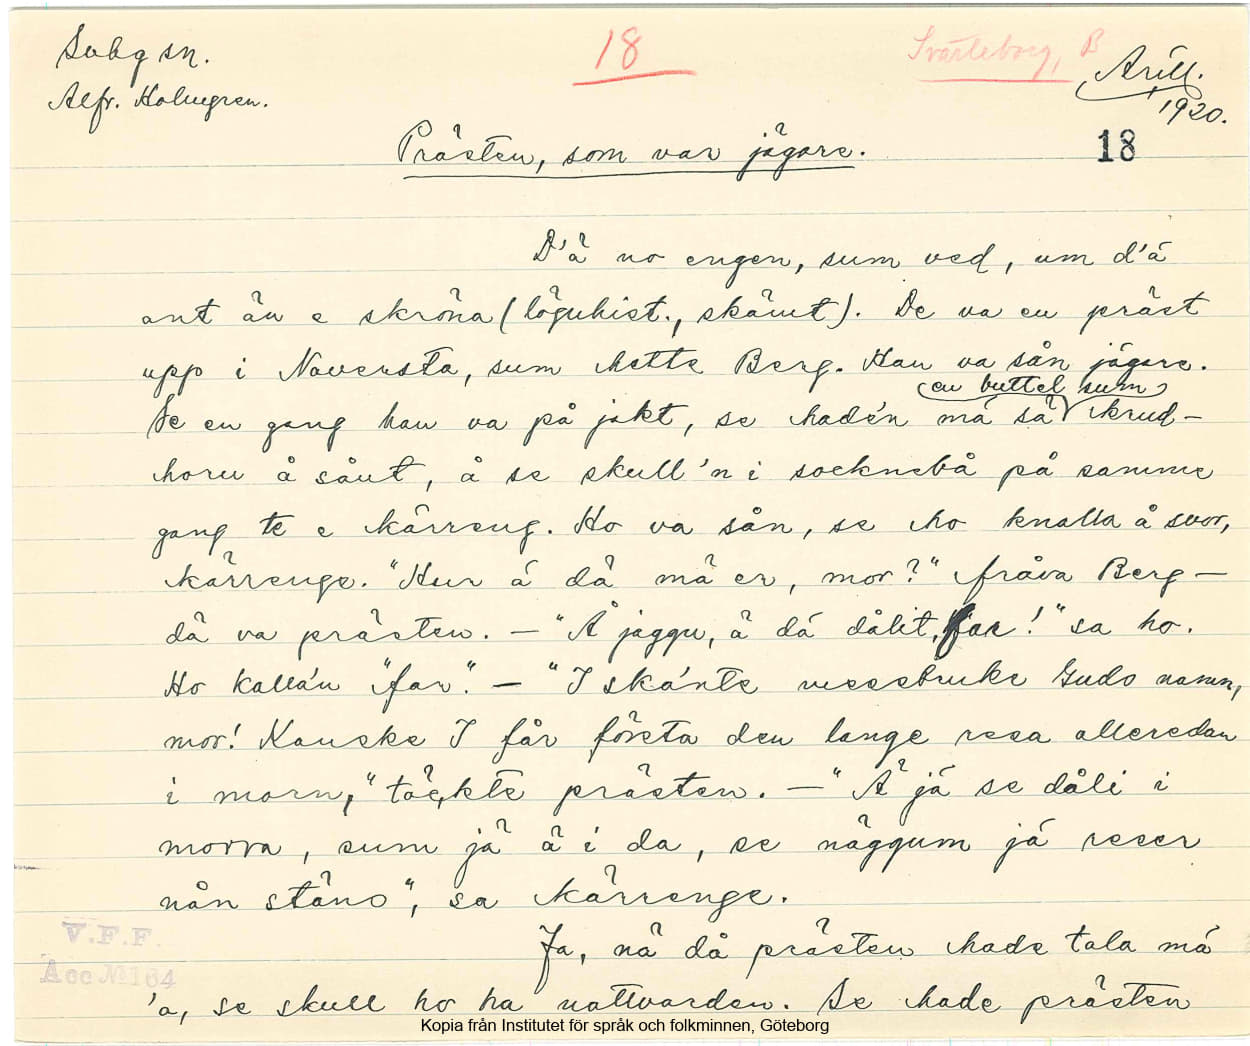 Svbg sn.
18
Svarteborg, B
Arill.
1920.
Alfr. Holmgren.
18
Prästen, som var jägare.
D'ä no engen, sum ved, um d'ä
ant än e skröna (löguhist., skämt). De va en präst
upp i Naversta, sum hette Berg. Han va sån jägare.
(en buttel sum)
Se en gang han va på jakt, se hade'n mä sä krud-
horn å sånt, å se skull'n i socknebå på samme
gang te e kärreng. Ho va sån, se ho knalla å svor,
kärrenge. "Hur ä dä mä er, mor?" fråva Berg –
dä va prästen. – "Å jaggu, ä dä dålit, far!" sa ho.
Ho kalla'n "far". – "I ska'nte messbruke Guds namn,
mor! Kanske I får före­sta den lange resa alleredan
i morn," täckte prästen. – "Ä jä se dåli i
morra, sum jä ä i da, se näggum jä reser
nån stäns", sa kärrenge.
Ja, nä då prästen hade tala mä
'a, se skull ho ha nattvarden. Se hade prästen
V.F.F.
Acc № 164
Kopia från Institutet för språk och folkminnen, Göteborg